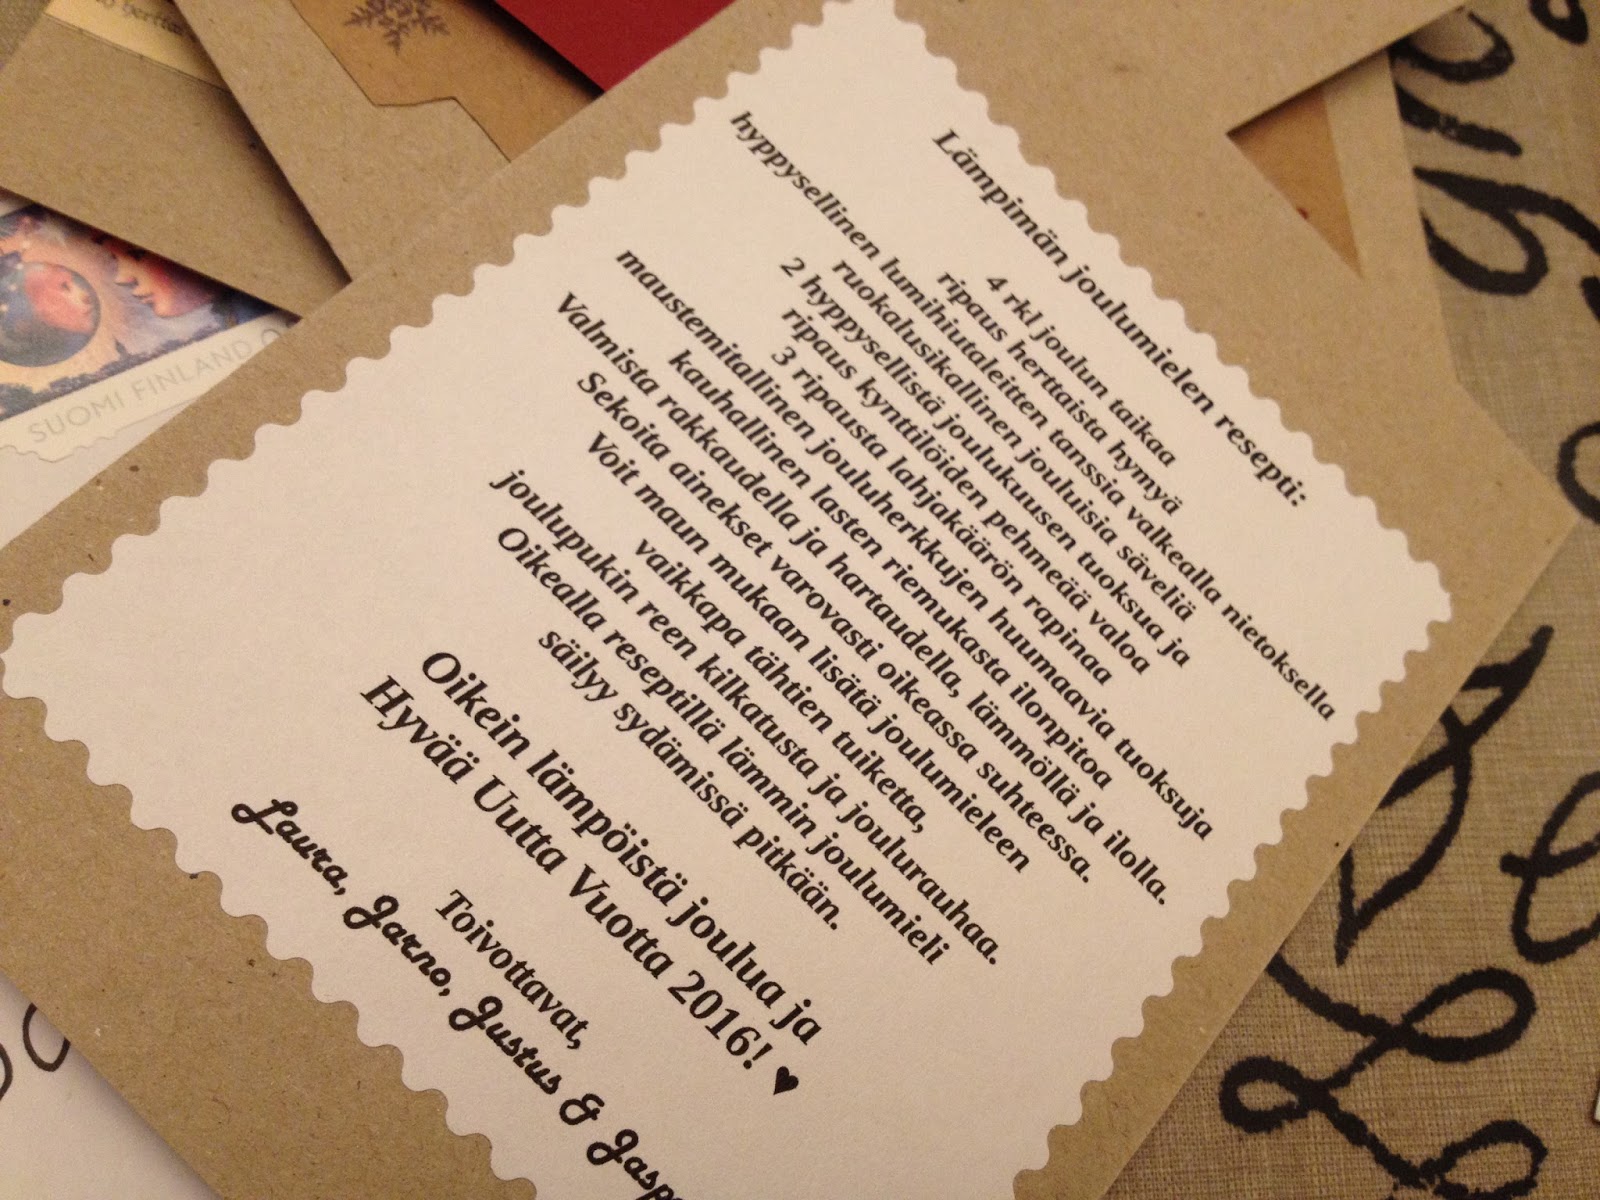 Lämpimän joulumielen resepti:
4 rkl joulun taikaa
ripaus herttaista hymyä
hyppysellinen lumihiutaleitten tanssia valkealla nietoksella
ruokalusikallinen jouluisia säveliä
2 hyppysellistä joulukuusen tuoksua ja
ripaus kynttilöiden pehmeää valoa
3 ripausta lahjakäärön rapinaa
maustemitallinen jouluherkkujen huumaavia tuoksuja
kauhallinen lasten riemukasta ilonpitoa
Valmista rakkaudella ja hartaudella, lämmöllä ja ilolla.
Sekoita ainekset varovasti oikeassa suhteessa.
Voit maun mukaan lisätä joulumieleen
vaikkapa tähtien tuiketta,
joulupukin reen kilkatusta ja joulurauhaa.
Oikealla reseptillä lämmin joulumieli
säilyy sydämissä pitkään.
Oikein lämpöistä joulua ja
Hyvää Uutta Vuotta 2016! ♥
Toivottavat,
Laura, Jarno, Justus & Jaspe
SUOMI FINLAND